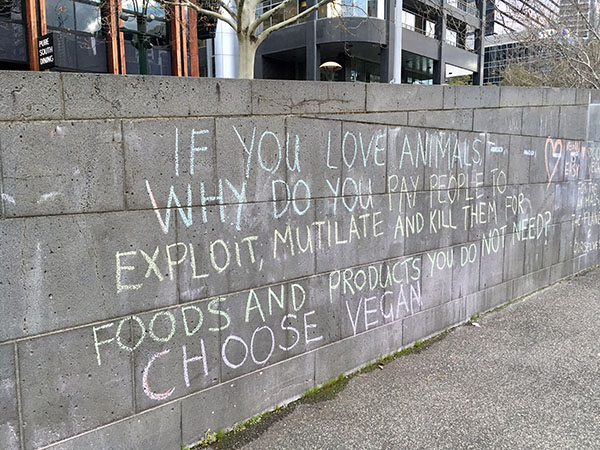 PURE
SOUTH
DINING
IF YOU LOVE ANIMALS,
WHY DO YOU PAY PEOPLE TO
EXPLOIT, MUTILATE AND KILL THEM FOR
FOODS AND PRODUCTS YOU DO NOT NEED?
CHOOSE VEGAN